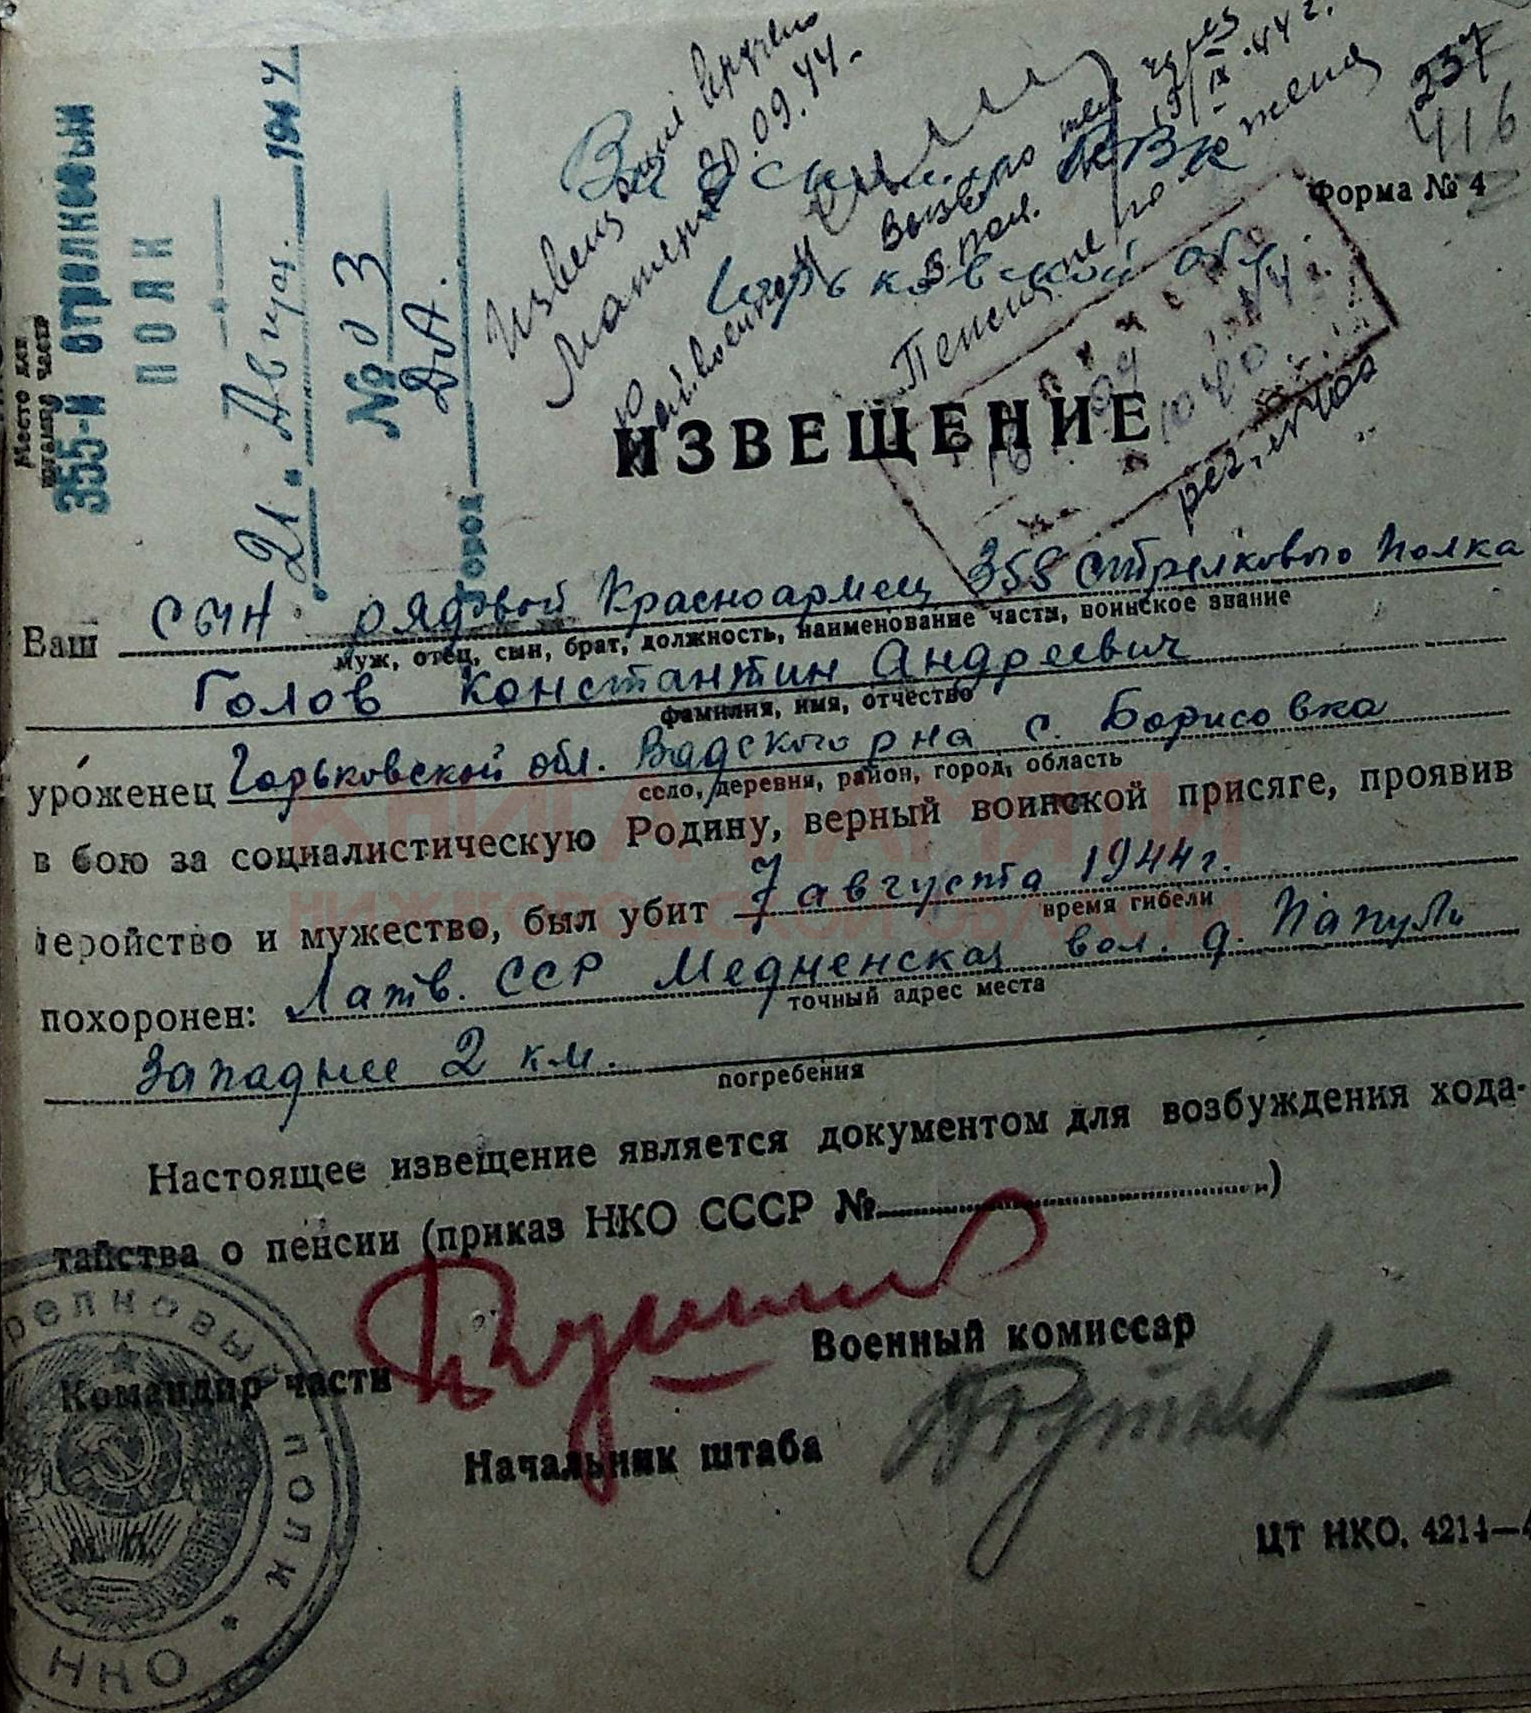 Место для
штампа части
355-й стрелковый
ПОЛК
21. Август 1944
№ 03
Д.А.
Город
Извещение вручено
Матери 20.09.44.
Вадскому РВК
Горьковской обл
237
416
Форма № 4
рег. № 400
ИЗВЕЩЕНИЕ
Ваш сын рядовой Красноармеец 355 стрелкового полка
муж, отец, сын, брат, должность, наименование части, воинское звание
Голов Константин Андреевич
фамилия, имя, отчество
уроженец Горьковской обл. Вадского р на с. Борисовка
село, деревня, район, город, область
в бою за социалистическую Родину, верный воинской присяге, проявив
геройство и мужество, был убит 7 августа 1944 г.
время гибели
похоронен: Латв. ССР Медненская вол. д. Папули
точный адрес места
Западнее 2 км.
погребения
Настоящее извещение является документом для возбуждения хода-
тайства о пенсии (приказ НКО СССР № )
Командир части
Военный комиссар
Начальник штаба
ЦТ НКО. 4214—4
релковый полк • НКО
КНИГА ПАМЯТИ
НИЖЕГОРОДСКОЙ ОБЛАСТИ